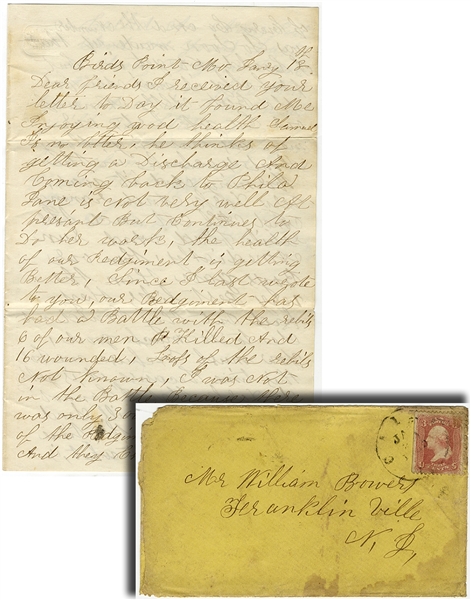 Birds Point Mo Jany 18
Dear friends I received your
letter to Day it found Me
Injoying good health Samuel
Is no better, he thinks of
getting a Discharge And
Coming back to Phila
Jane is Not very well At
presant But Continues to
Do her work, the health
of our Redgiment is getting
Better, Since I last wrote
to you, our Redgiment has
had a Battle with the rebils
6 of our men Killed And
16 wounded, Loss of the rebils
Not Known, I was Not
in the Battle Because there
was only 3
of the Redgim
And they
Mr William Bowers
Franklin Ville
N. J,